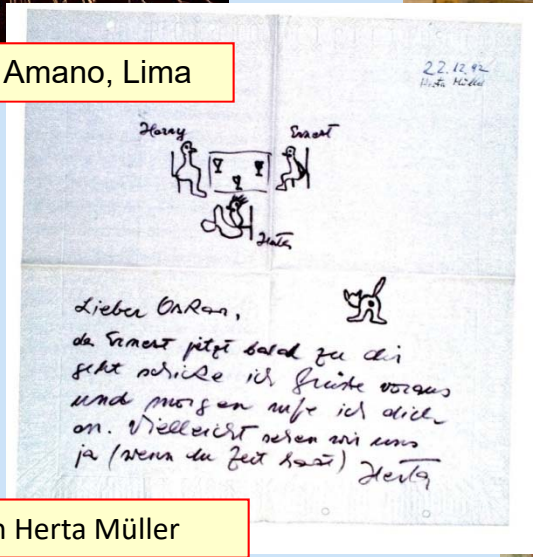 Amano, Lima
22.12.92
Herta Müller
Harry
Ernest
Herta
Lieber Onkan,
da Ernest jetzt bald zu dir
geht schicke ich Grüße voraus
und morgen rufe ich dich
an. Vielleicht sehen wir uns
ja (wenn du Zeit hast) Herta
n Herta Müller